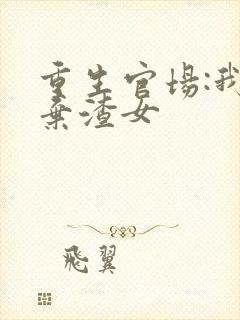 重生官場:我
棄渣女
飛翼